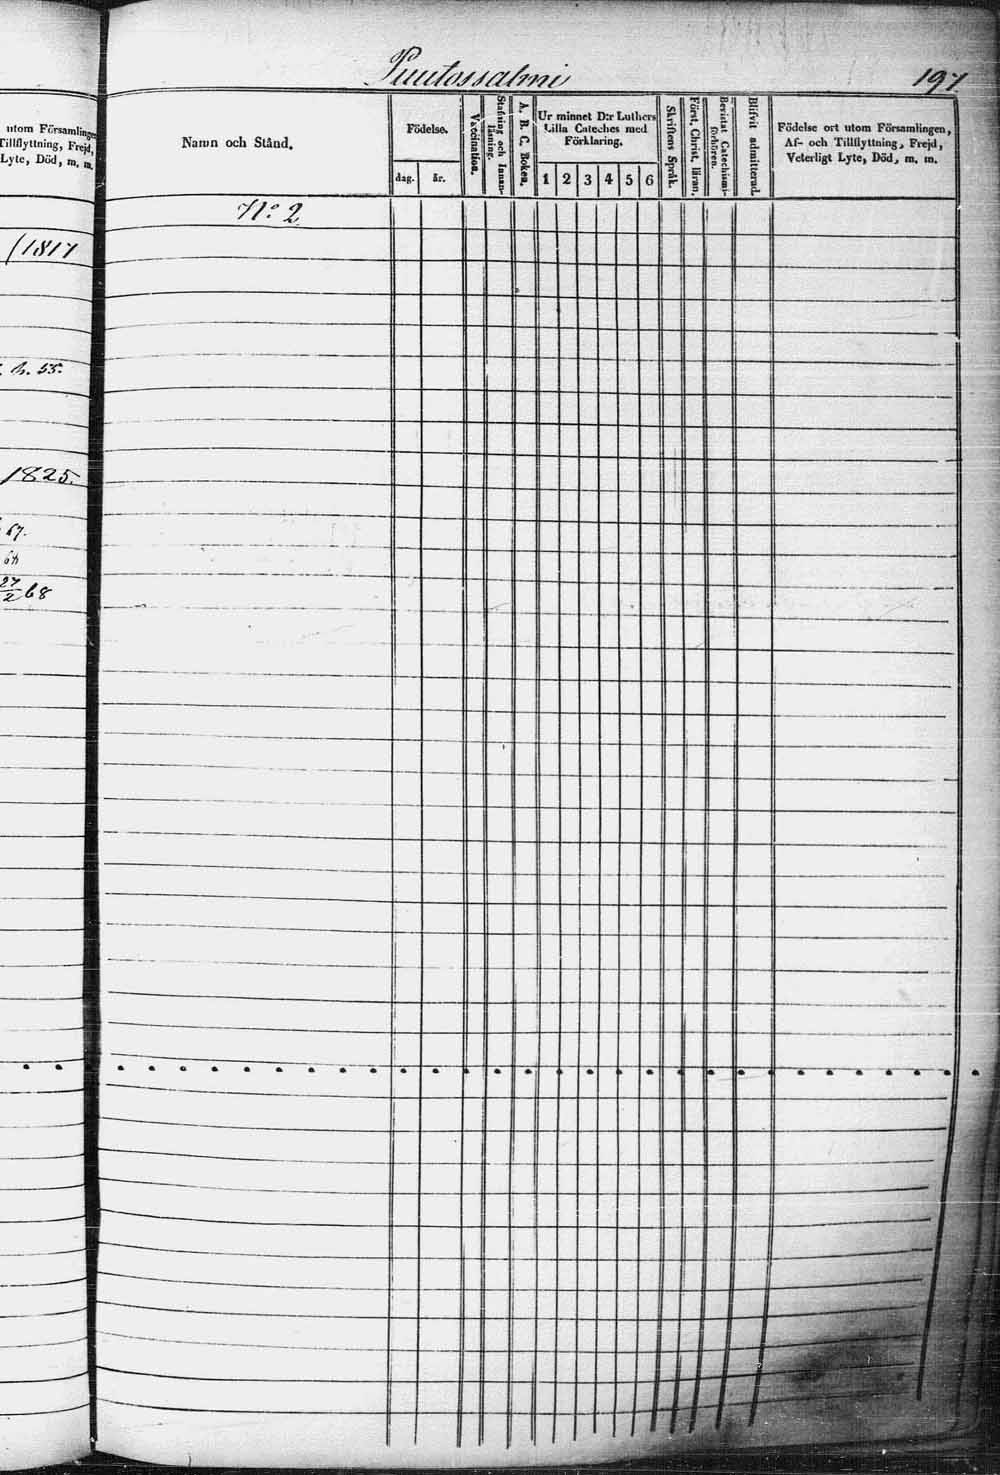 Puutossalmi
197
utom Församlingen
Tillflyttning, Frejd,
Lyte, Död, m. m.
(1817
h. 55.
1825.
67.
27/2 68
Namn och Stånd.
Födelse.
dag.
år.
Vaccination.
Stafning och Innan-
läsning.
A. B. C. Boken.
Ur minnet D:r Luthers
Lilla Cateches med
Förklaring.
1 2 3 4 5 6
Skriftens Språk.
Först. Christ. läran.
Bevistat Catechismi-
förhören.
Blifvit admitterad.
Födelse ort utom Församlingen,
Af- och Tillflyttning, Frejd,
Veterligt Lyte, Död, m. m.
No 2